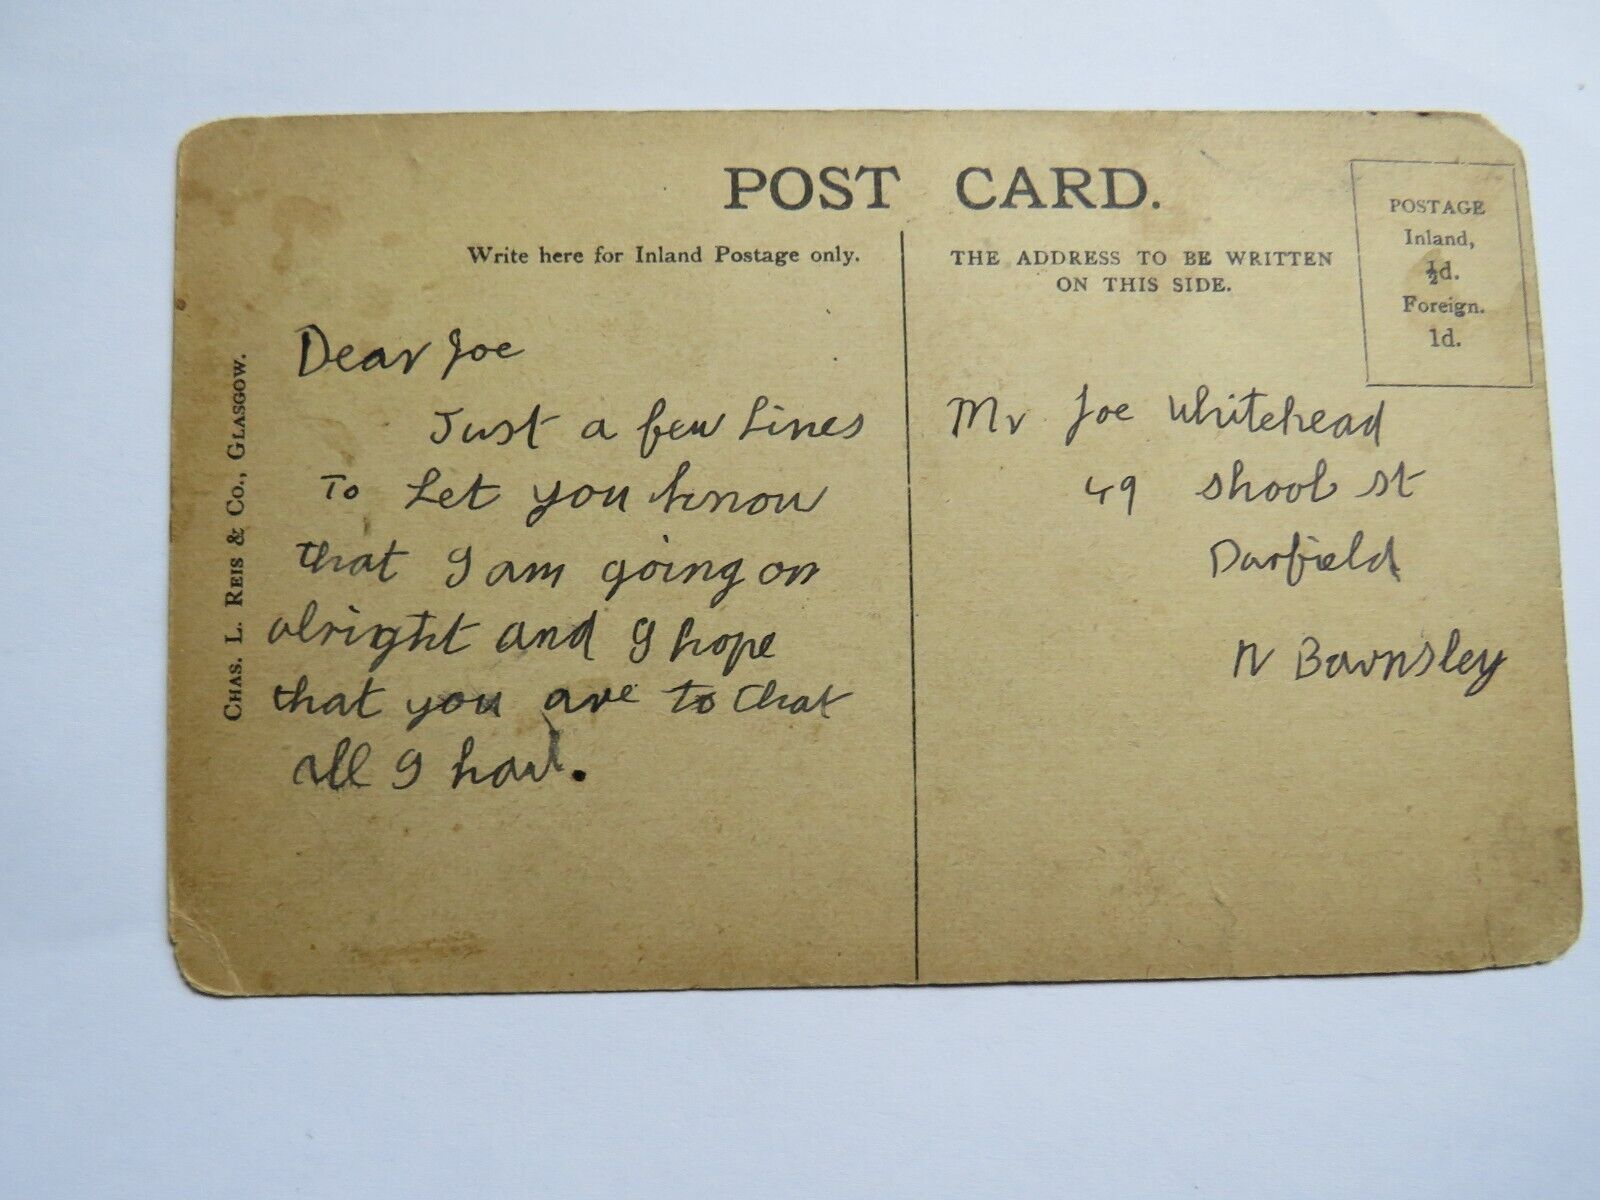 POST CARD.
Write here for Inland Postage only.
THE ADDRESS TO BE WRITTEN
ON THIS SIDE.
POSTAGE
Inland,
½d.
Foreign.
1d.
CHAS. L. REIS & CO., GLASGOW.
Dear Joe
Just a few Lines
To Let you know
that I am going on
alright and I hope
that you are to that
all I have.
Mr Joe Whitehead
49 shool st
Darfield
N Barnsley